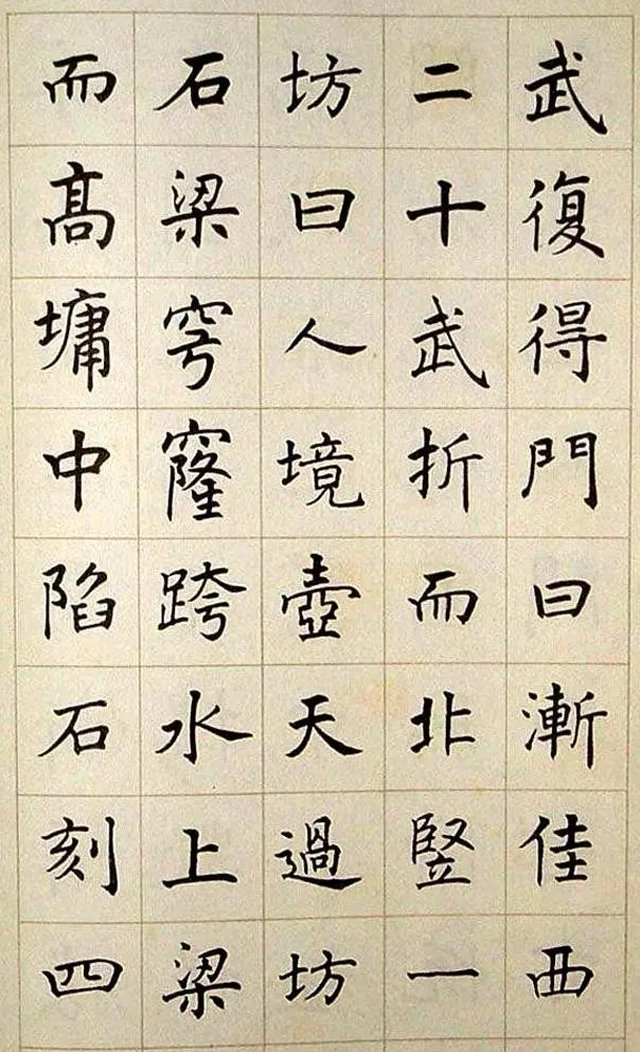 武復得門曰漸佳西
二十武折而北竪一
坊曰人境壺天過坊
石梁穹窿跨水上梁
而髙墉中陷石刻四